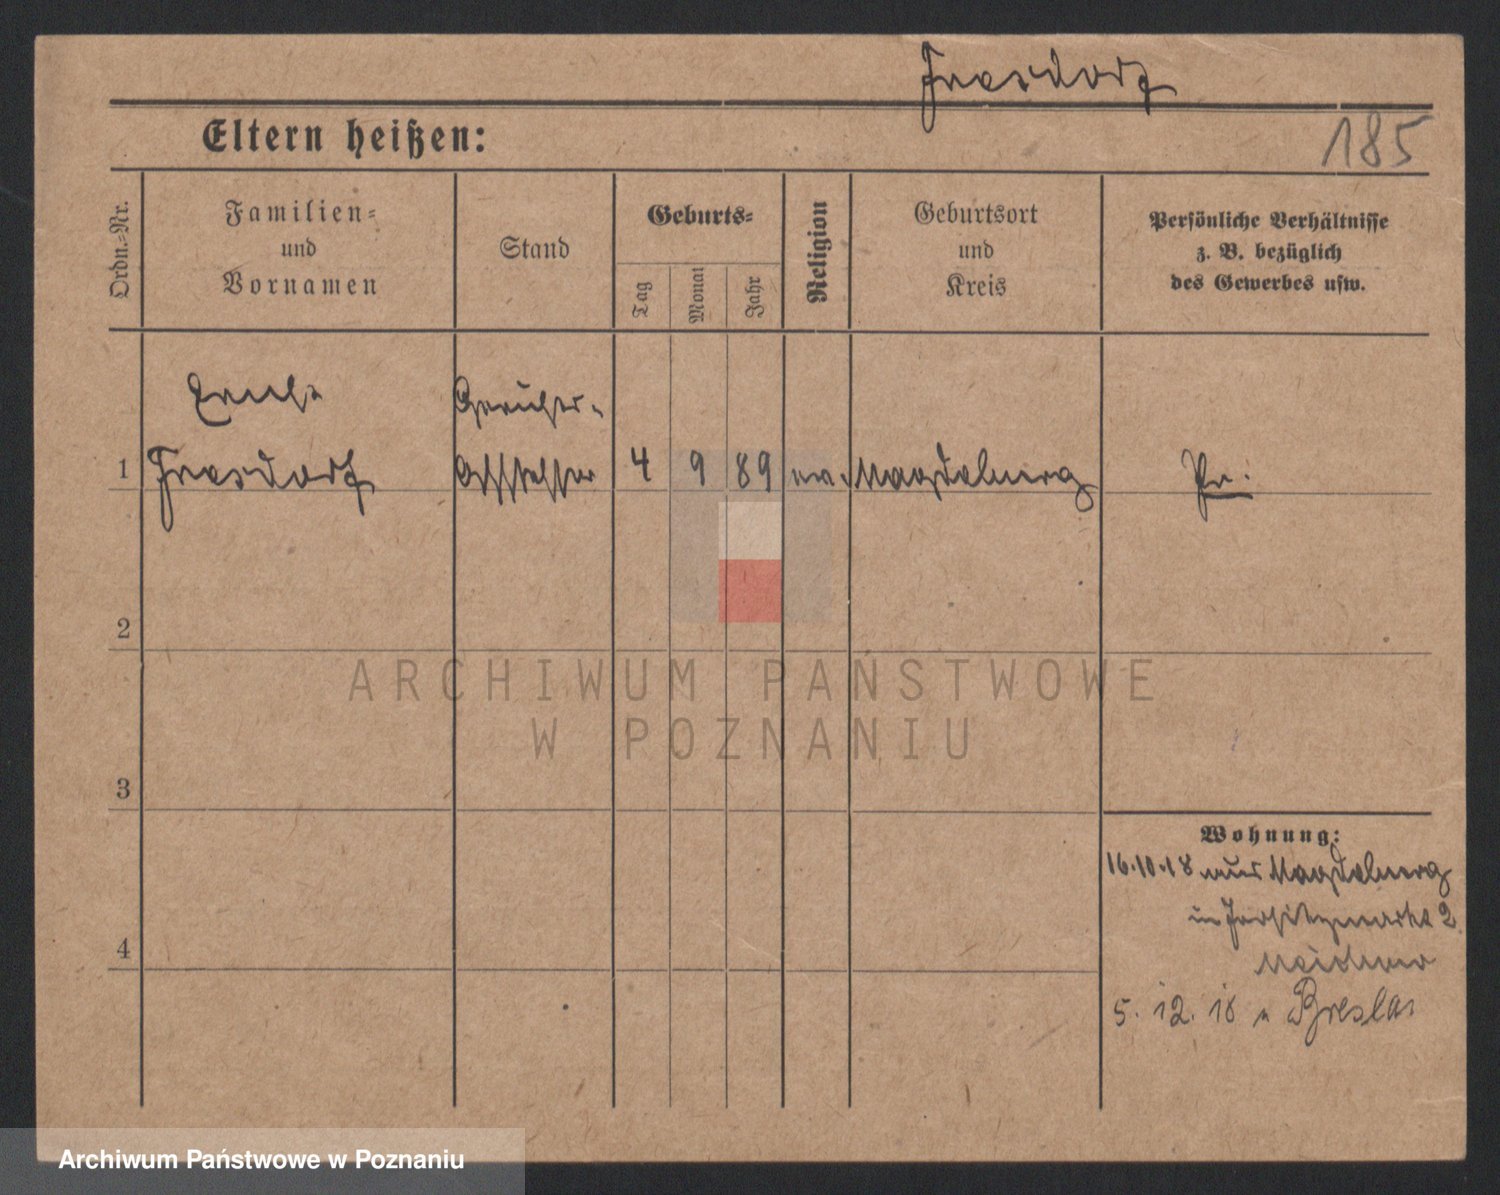 Fresdorf
Eltern heißen:
185
Ordn.-Nr.
Familien-
und
Vornamen
Stand
Geburts-
Tag
Monat
Jahr
Religion
Geburtsort
und
Kreis
Persönliche Verhältnisse
z. B. bezüglich
des Gewerbes usw.
Gerichts-
1 Fresdorf Assessor 4 9 89 ev. Magdeburg Pr.
2
3
4
Wohnung:
16.10.18 aus Magdeburg
in 2
5. 12. 18 n Breslau
ARCHIWUM PAŃSTWOWE
W POZNANIU
Archiwum Państwowe w Poznaniu